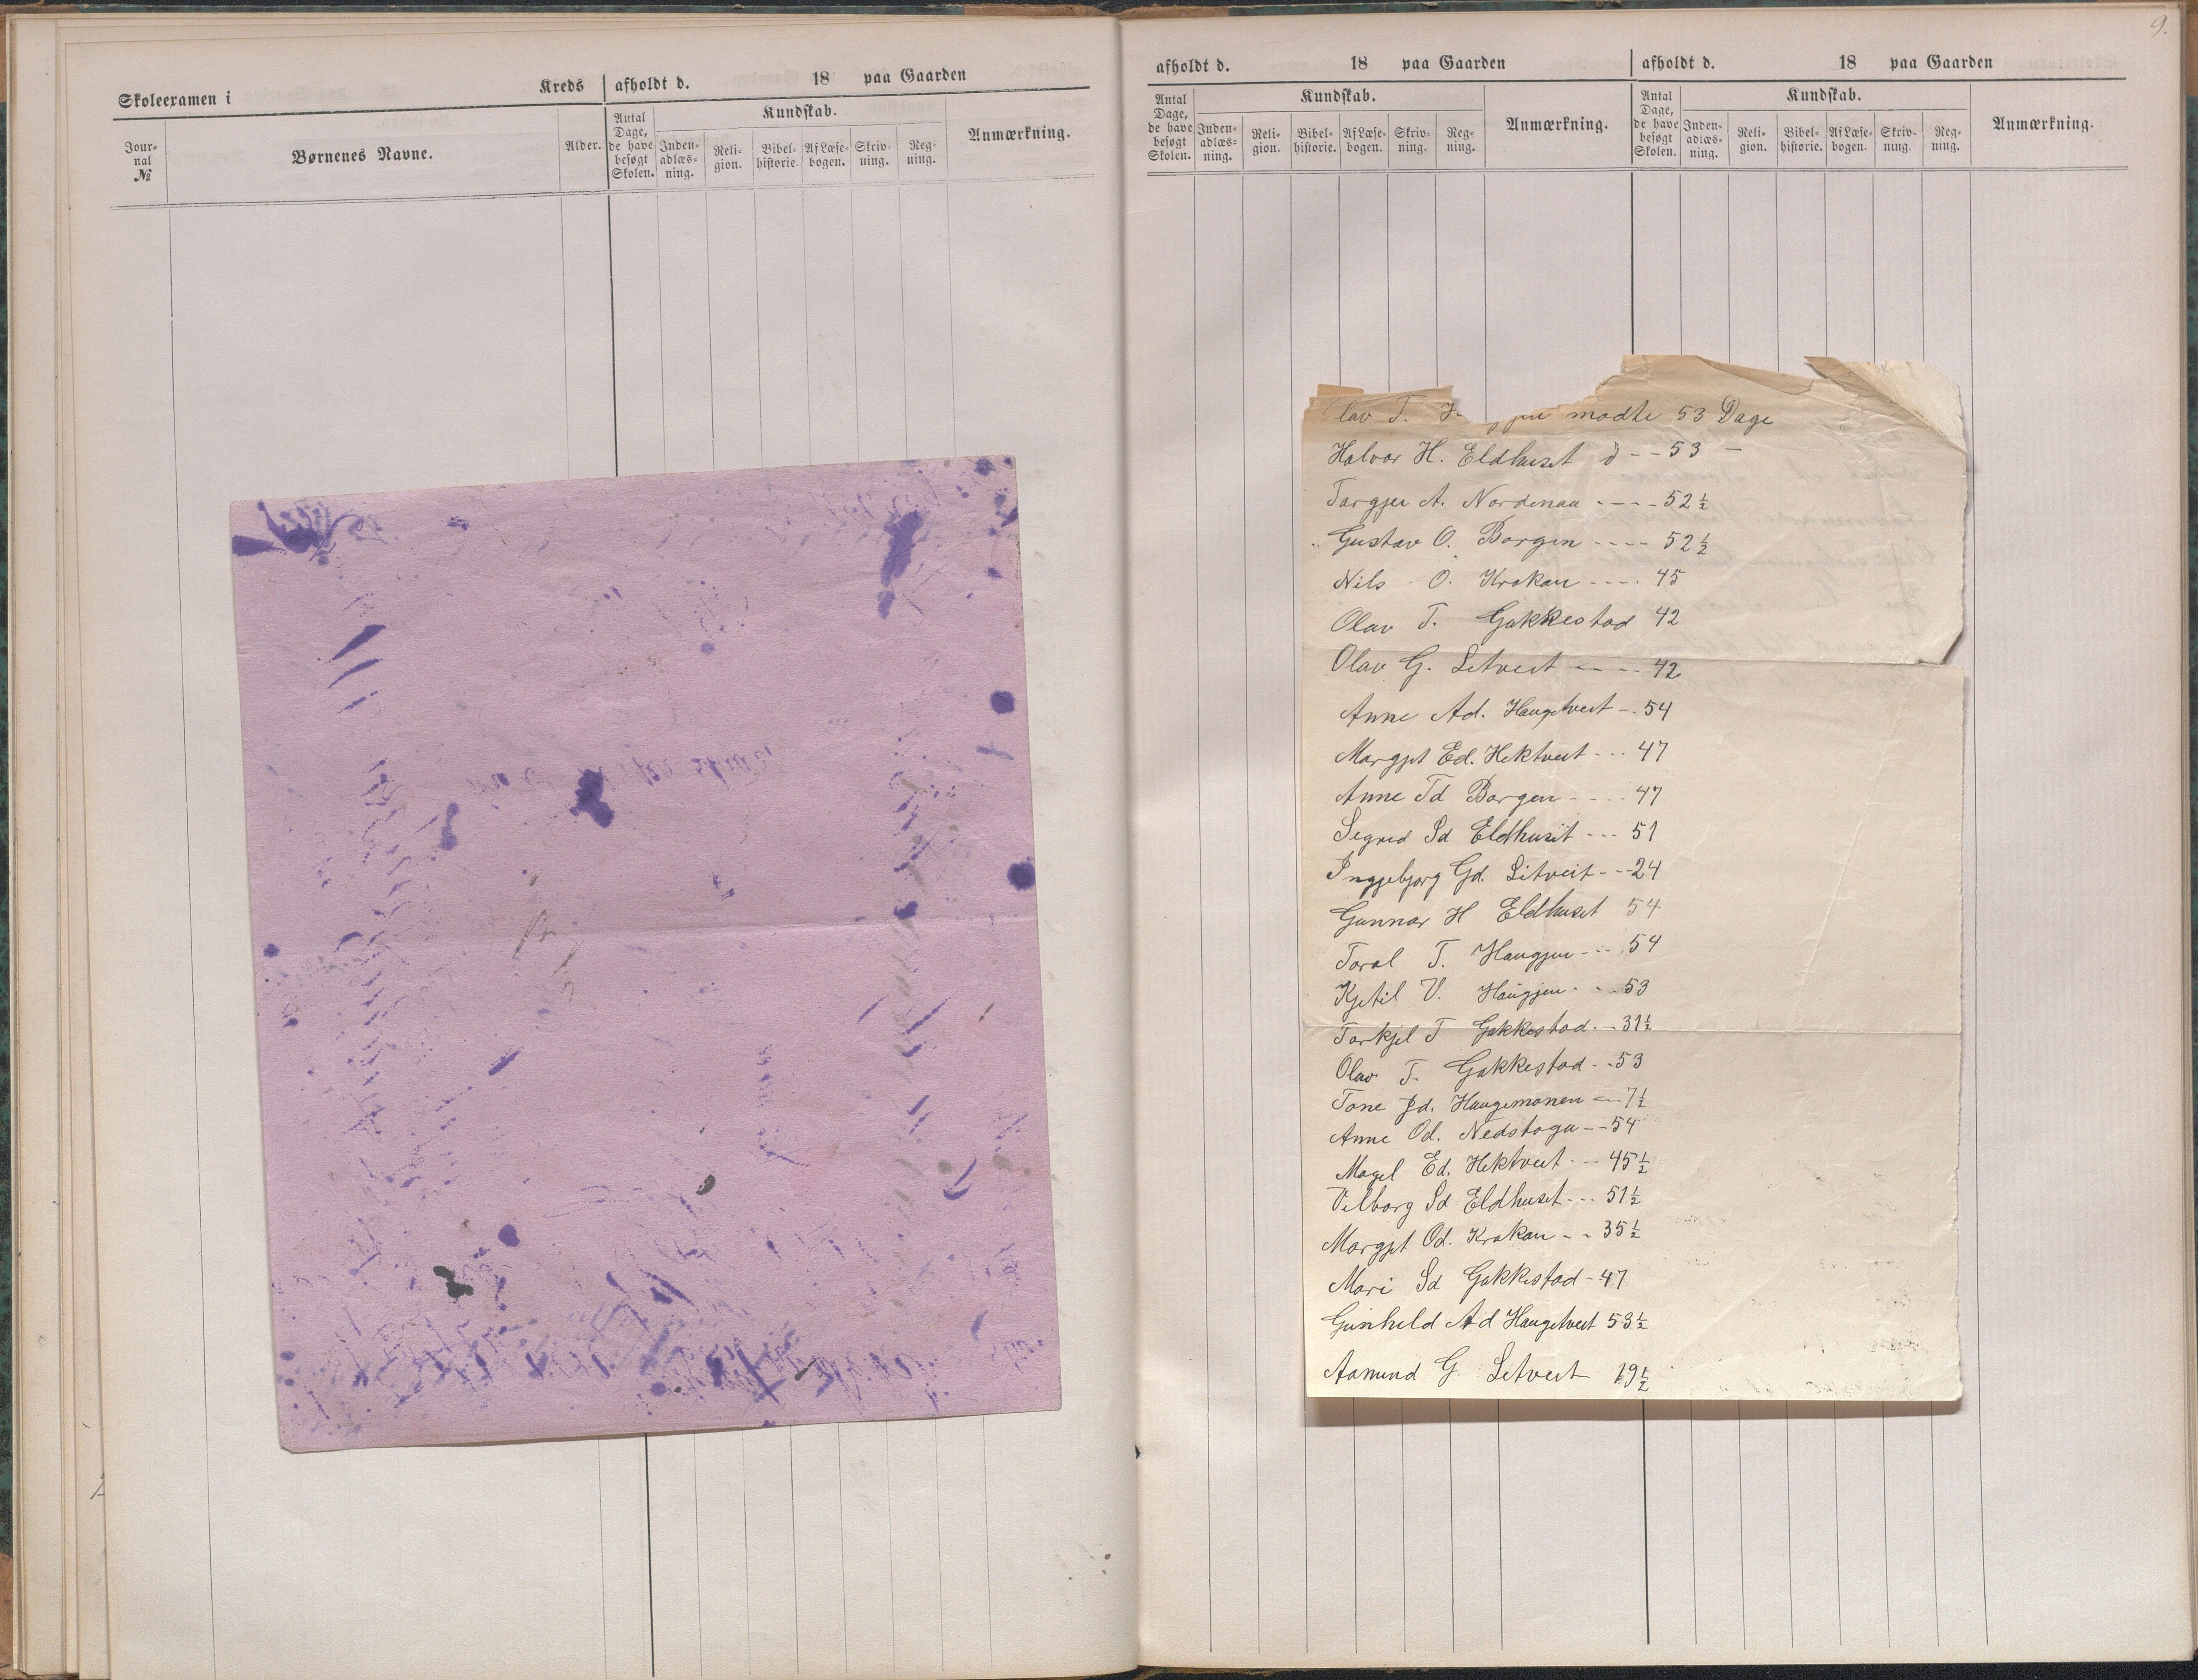 Skoleexamen i Kreds afholdt d. 18 paa Gaarden
Jour-
nal
№
Børnenes Navne.
Alder.
Antal
Dage,
de have
besøgt
Skolen.
Kundskab.
Inden-
adlæs-
ning.
Reli-
gion.
Bibel-
historie.
Af Læse-
bogen.
Skriv-
ning.
Reg-
ning.
Anmærkning.
9.
afholdt d. 18 paa Gaarden
Antal
Dage,
de have
besøgt
Skolen.
Kundskab.
Inden-
adlæs-
ning.
Reli-
gion.
Bibel-
historie.
Af Læse-
bogen.
Skriv-
ning.
Reg-
ning.
Anmærkning.
afholdt d. 18 paa Gaarden
Antal
Dage,
de have
besøgt
Skolen.
Kundskab.
Inden-
adlæs-
ning.
Reli-
gion.
Bibel-
historie.
Af Læse-
bogen.
Skriv-
ning.
Reg-
ning.
Anmærkning.
lav T. modte 53 Dage
Halvor H. Eldhuset d - - 53 -
Targjer A. Nordenaa - - - - 52 ½
Gustav O. Borgen - - - - 52 ½
Nils O. Krokan - - - - 45
Olav T. Gakkestad 42
Olav G. Litveit - - - - 42
Anne Ad. Haugetveit - . 54
Margjet Ed. Hektveit - - - 47
Anne Td Borgen - - - - 47
Segred Sd Eldhuset - - - 51
Inggebjorg Gd. Litveit - - - 24
Gunnar H Eldhuset 54
Toral T. Haugjen - - - 54
Kjetil V. Haugjen - - - 53
Tarkjel T Gakkestad. - 31 ½
Olav T. Gakkestad - - 53
Tone Jd. Haugemonen - - 7 ½
Anne Od. Nedstoga - - 54
Magel Ed. Hektveit - - - 45 ½
Velborg Sd Eldhuset - - - 51 ½
Margjet Od. Krokan - - 35 ½
Mari Sd Gakkestad - 47
Gunheld Ad Haugetveit 53 ½
Aamund G. Litveit 19 ½